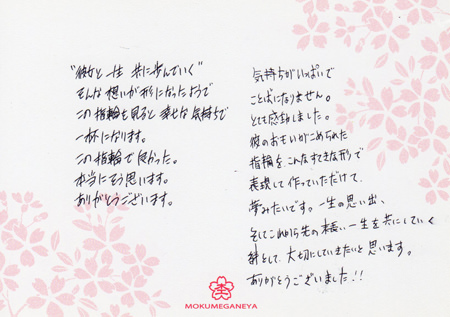 "彼女と一生 共に歩んでいく"
そんな想いが形になったようで
この指輪を見ると幸せな気持ちで
一杯になります。
この指輪で良かった。
本当にそう思います。
ありがとうございます。
気持ちがいっぱいで
ことばになりません。
とても感動しました。
彼のおもいがこめられた
指輪を、こんなすてきな形で
表現して作っていただけて、
夢みたいです。一生の思い出、
そしてこれから先の長い一生を共にしていく
絆として、大切にしていきたいと思います。
ありがとうございました!!
MOKUMEGANEYA